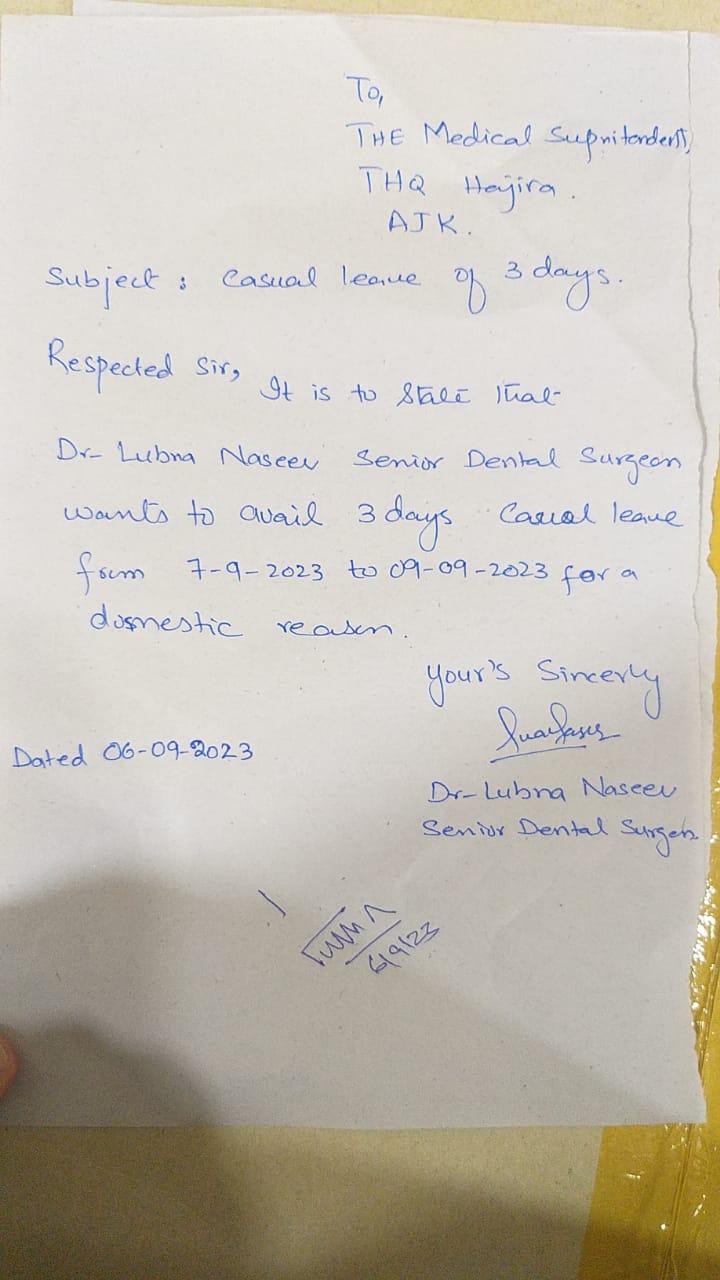 To,
THE Medical Supnitendent,
THQ Hajira.
AJK.
Subject : Casual leave of 3 days.
Respected Sir,
It is to State that
Dr- Lubna Naseer Senior Dental Surgeon
wants to avail 3 days Casual leave
from 7-9-2023 to 09-09-2023 for a
domestic reason.
Your's Sincerly
Dated 06-09-2023
Dr- Lubna Naseer
Senior Dental Surgen
6/9/23